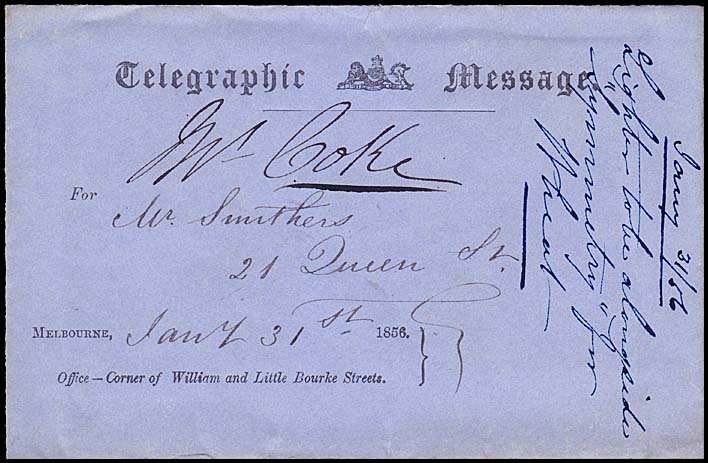 Telegraphic Message.
Mr. Coke
For
Mr. Smithers
21 Queen St.
MELBOURNE, Jany 31st 1856.
Office—Corner of William and Little Bourke Streets.
Jany 31/56
Lighter to be alongside
"Symmetry" for
Wheat